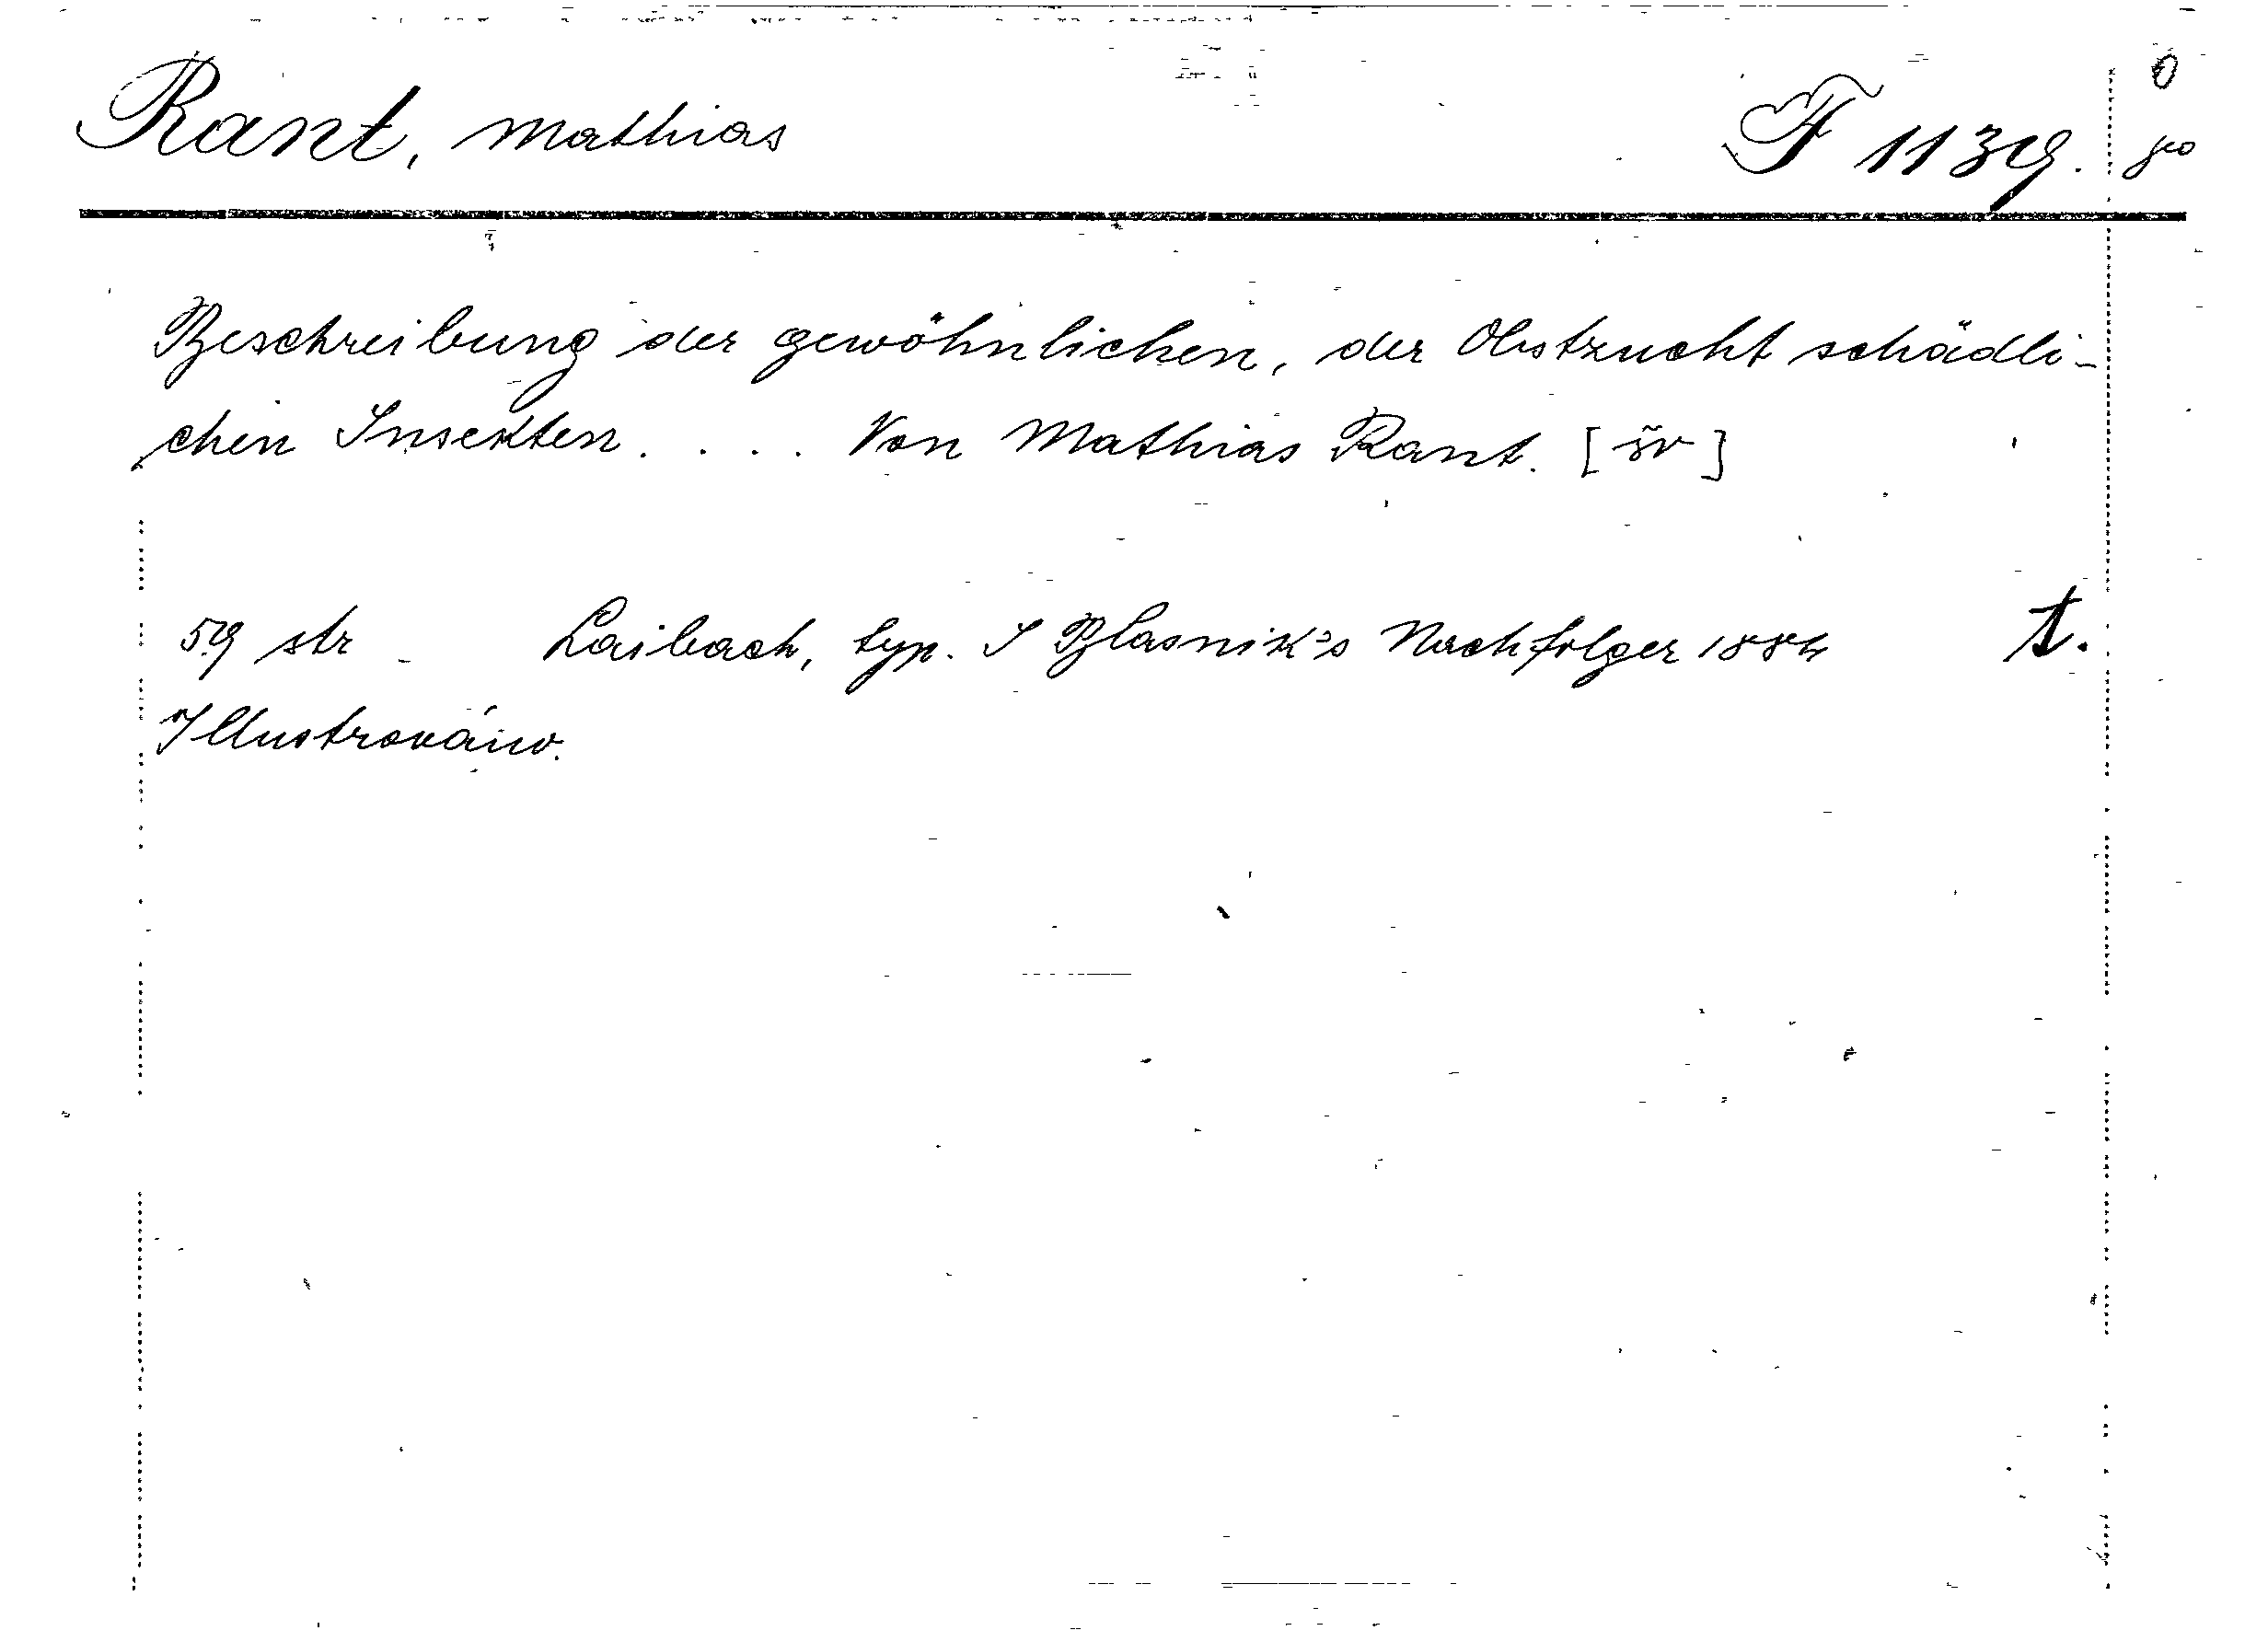 Rant, Mathias F 1139.
Beschreibung der gewöhnlichen, der Obstzucht schädli-
chen Insekten.... Von Mathias Rant.
59 str - Laibach, typ. J Blasnik's Nachfolger 1884 t.
Illustrováno.